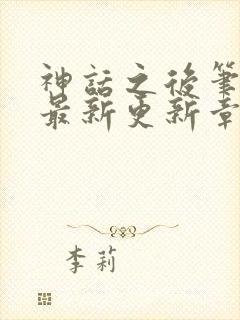 神話之後筆
最新更新章
李莉